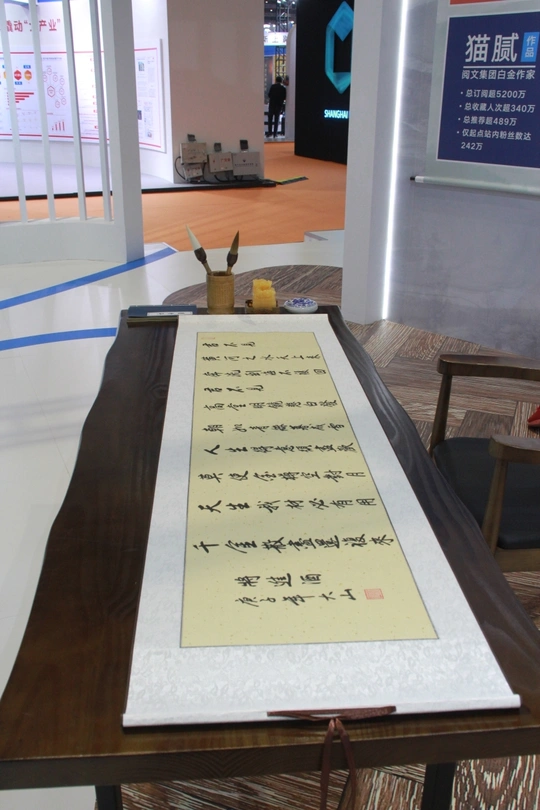 动“大产业”
SHANGHAI
猫腻
作品
阅文集团白金作家
• 总订阅超5200万
• 总收藏人次超340万
• 总推荐超489万
• 仅起点站内粉丝数达
242万
君不見
黃河之水天上來
奔流到海不復回
君不見
高堂明鏡悲白髮
朝如青絲暮成雪
人生得意須盡歡
莫使金樽空對月
天生我材必有用
千金散盡還復來
將進酒
庚子年大山